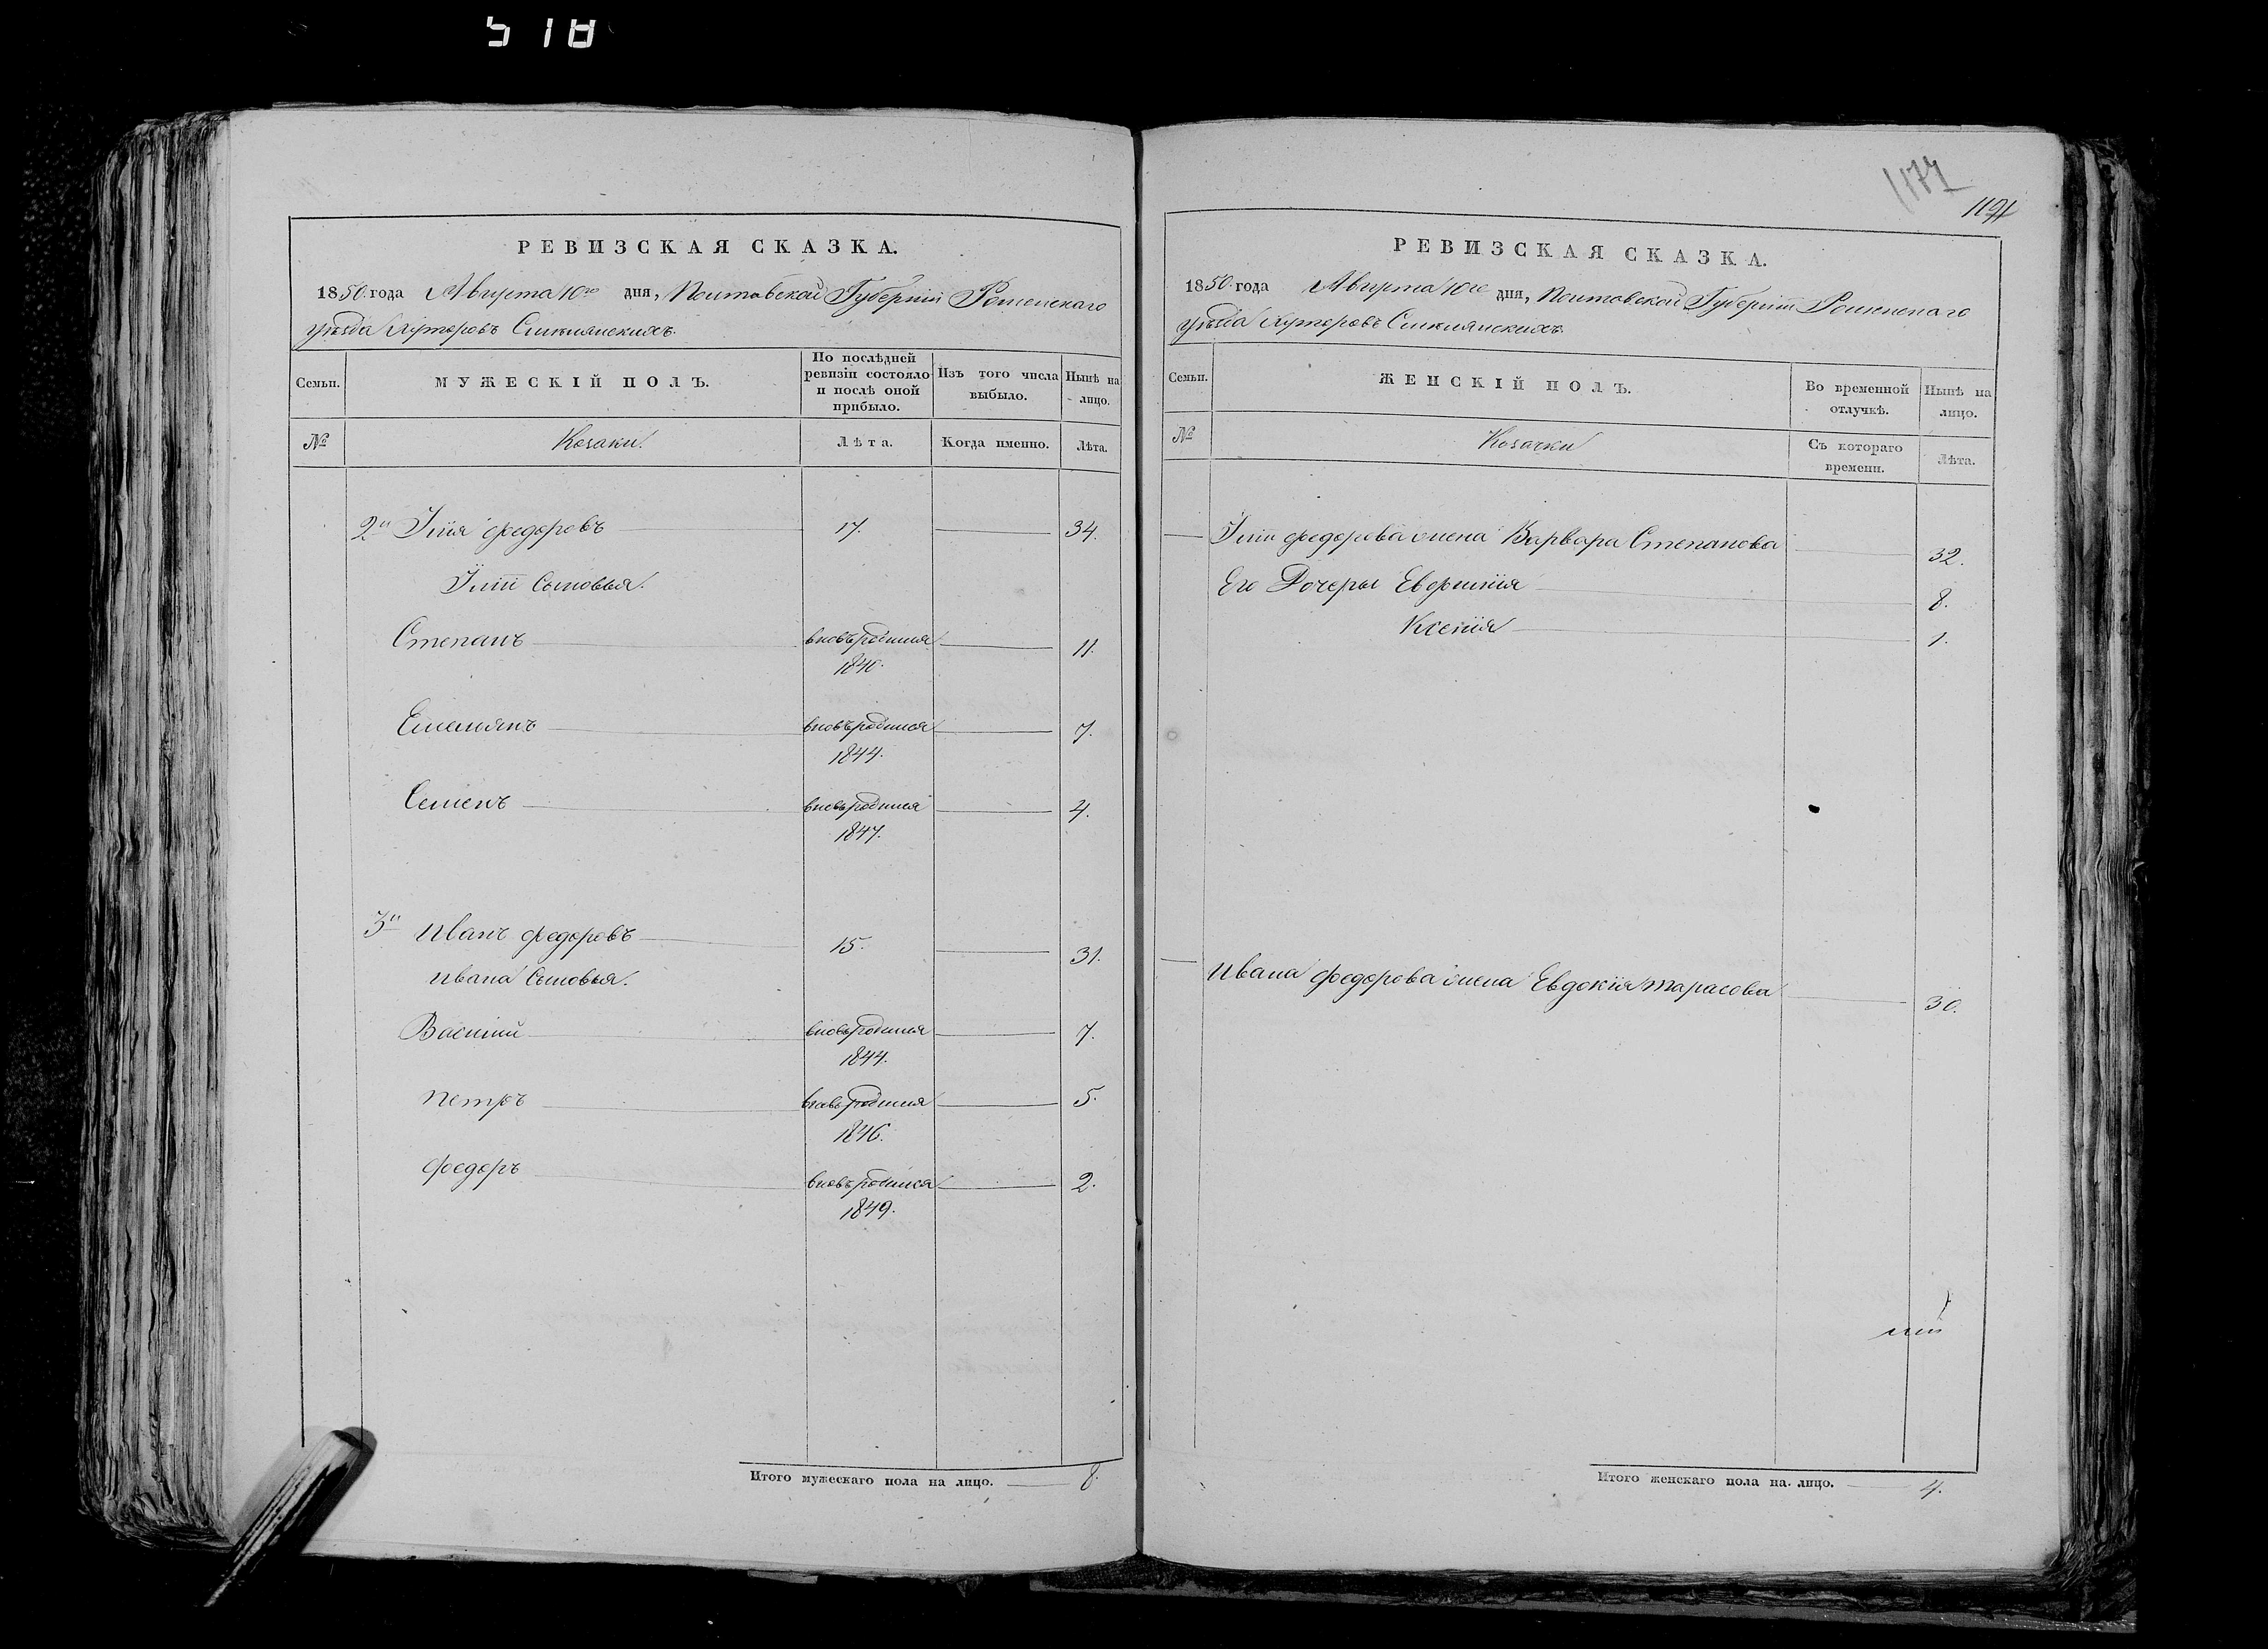 518
РЕВИЗСКАЯ СКАЗКА.
1850 года Августа 10го дня, Полтавской Губерніи Роменскаго
уѣзда Хуторовъ
Семьи.
МУЖЕСКІЙ ПОЛЪ.
По послѣдней ревизіи состояло и послѣ оной прибыло.
Изъ того числа выбыло.
Нынѣ на лицо.
№
Козаки.
Лѣта.
Когда именно.
Лѣта.
2й Илія Федоровъ 17. 34.
Иліи Сыновья.
Степанъ вновърожденъ 11.
1840.
Емельянъ вновьродился 7.
1844.
Семенъ вновьродился 4.
1847.
3й Иванъ Федоровъ 15. 31.
Ивана Сыновья.
Василій вновьродился 7.
1844.
Петръ вновьродился 5.
1846.
Федоръ вновьродился 2.
1849.
Итого мужескаго пола на лицо. 8.
1174
1191
РЕВИЗСКАЯ СКАЗКА.
1850 года Августа 10го дня, Полтавской Губерніи Роменскаго
уѣзда Хуторовъ
Семьи.
ЖЕНСКІЙ ПОЛЪ.
Во временной отлучкѣ.
Нынѣ на лицо.
№
Козачки
Съ котораго времени.
Лѣта.
Иліи Федорова жена Варвара Степанова 32.
Его Дочеры Евфимія 8.
Ксенія 1.
Ивана Федорова жена Евдокія Тарасова 30.
Итого женскаго пола на лицо. 4.